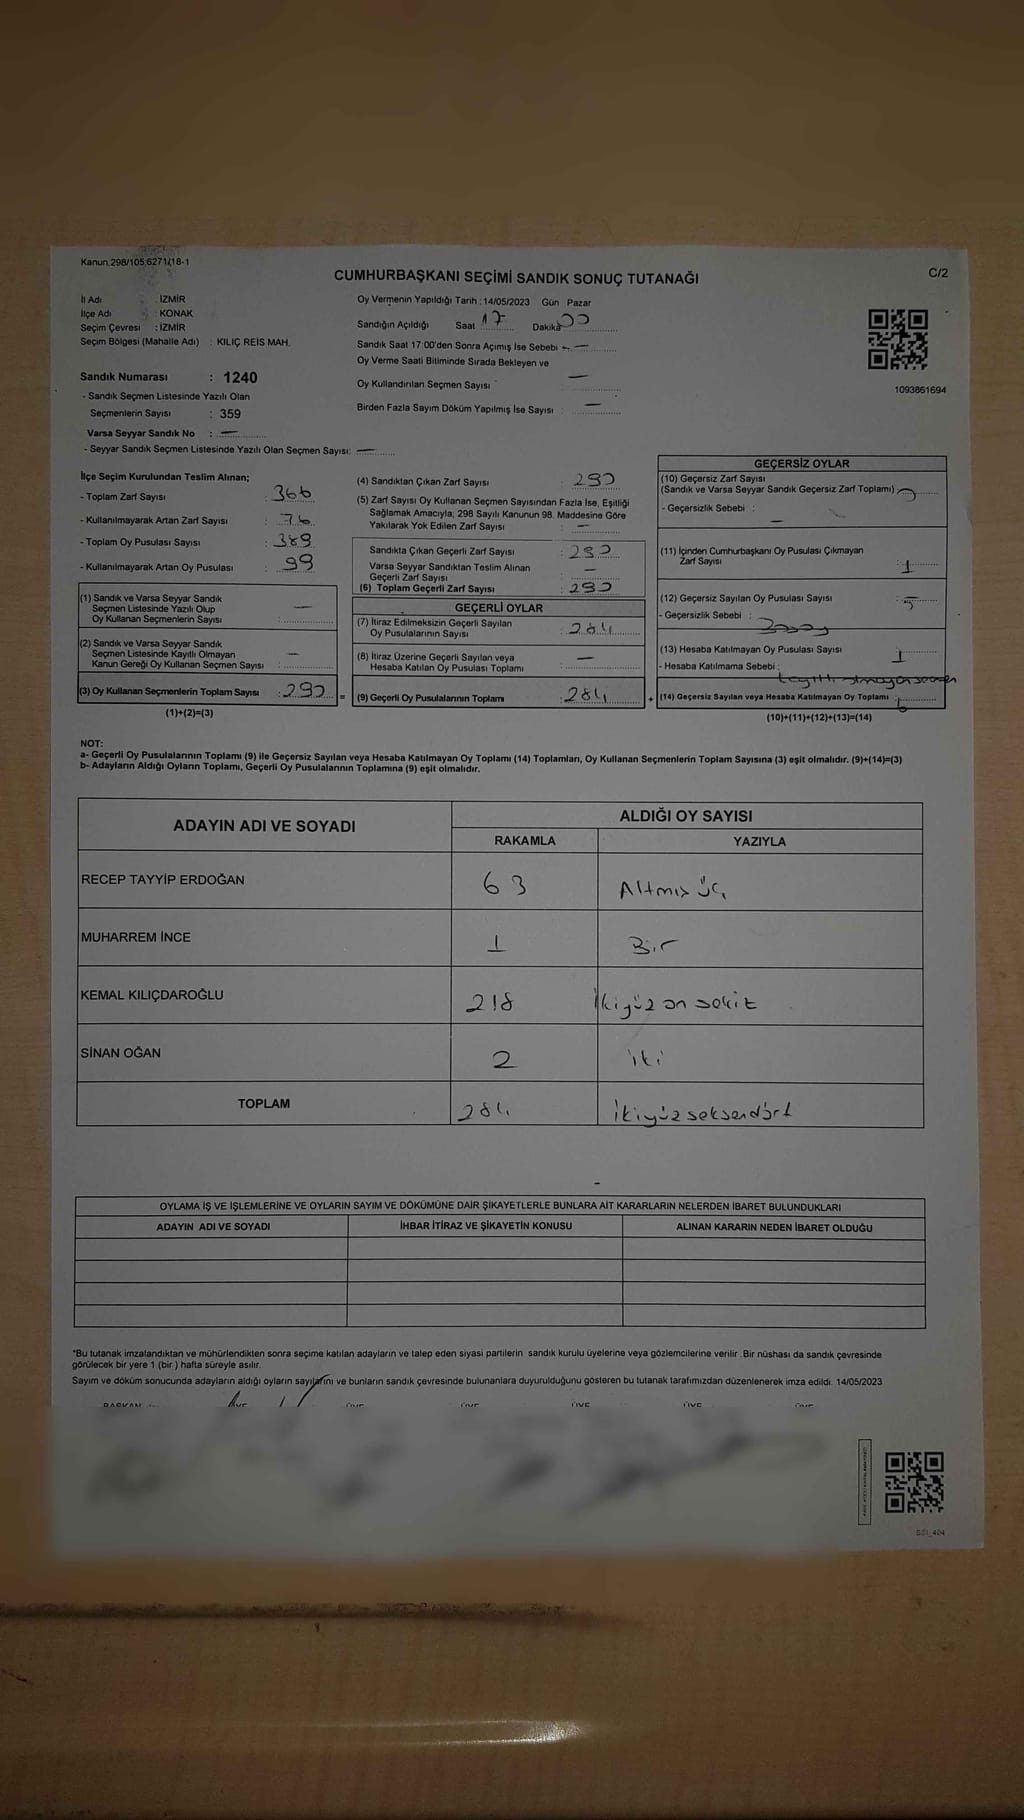 Kanun:298/105;6271/18-1
CUMHURBAŞKANI SEÇİMİ SANDIK SONUÇ TUTANAĞI
C/2
İl Adı : İZMİR
İlçe Adı : KONAK
Seçim Çevresi : İZMİR
Seçim Bölgesi (Mahalle Adı) : KILIÇ REİS MAH.
Sandık Numarası : 1240
- Sandık Seçmen Listesinde Yazılı Olan
Seçmenlerin Sayısı : 359
Varsa Seyyar Sandık No : —
- Seyyar Sandık Seçmen Listesinde Yazılı Olan Seçmen Sayısı: —
Oy Vermenin Yapıldığı Tarih : 14/05/2023 Gün Pazar
Sandığın Açıldığı Saat 17 Dakika 00
Sandık Saat 17:00'den Sonra Açımış İse Sebebi : —
Oy Verme Saati Bitiminde Sırada Bekleyen ve
Oy Kullandırılan Seçmen Sayısı : —
Birden Fazla Sayım Döküm Yapılmış İse Sayısı : —
1093861694
İlçe Seçim Kurulundan Teslim Alınan;
- Toplam Zarf Sayısı : 366
- Kullanılmayarak Artan Zarf Sayısı : 76
- Toplam Oy Pusulası Sayısı : 389
- Kullanılmayarak Artan Oy Pusulası : 99
(1) Sandık ve Varsa Seyyar Sandık
Seçmen Listesinde Yazılı Olup
Oy Kullanan Seçmenlerin Sayısı : —
(2) Sandık ve Varsa Seyyar Sandık
Seçmen Listesinde Kayıtlı Olmayan
Kanun Gereği Oy Kullanan Seçmen Sayısı : —
(3) Oy Kullanan Seçmenlerin Toplam Sayısı : 290 =
(1)+(2)=(3)
(4) Sandıktan Çıkan Zarf Sayısı : 290
(5) Zarf Sayısı Oy Kullanan Seçmen Sayısından Fazla İse, Eşitliği
Sağlamak Amacıyla; 298 Sayılı Kanunun 98. Maddesine Göre
Yakılarak Yok Edilen Zarf Sayısı : —
Sandıkta Çıkan Geçerli Zarf Sayısı : 290
Varsa Seyyar Sandıktan Teslim Alınan
Geçerli Zarf Sayısı : —
(6) Toplam Geçerli Zarf Sayısı : 290
GEÇERLİ OYLAR
(7) İtiraz Edilmeksizin Geçerli Sayılan
Oy Pusulalarının Sayısı : 284
(8) İtiraz Üzerine Geçerli Sayılan veya
Hesaba Katılan Oy Pusulası Toplamı : —
(9) Geçerli Oy Pusulalarının Toplamı : 284 +
GEÇERSİZ OYLAR
(10) Geçersiz Zarf Sayısı
(Sandık ve Varsa Seyyar Sandık Geçersiz Zarf Toplamı) :
- Geçersizlik Sebebi :
—
(11) İçinden Cumhurbaşkanı Oy Pusulası Çıkmayan
Zarf Sayısı : 1
(12) Geçersiz Sayılan Oy Pusulası Sayısı : 5
- Geçersizlik Sebebi :
(13) Hesaba Katılmayan Oy Pusulası Sayısı : 1
- Hesaba Katılmama Sebebi :
(14) Geçersiz Sayılan veya Hesaba Katılmayan Oy Toplamı : 6
(10)+(11)+(12)+(13)=(14)
NOT:
a- Geçerli Oy Pusulalarının Toplamı (9) ile Geçersiz Sayılan veya Hesaba Katılmayan Oy Toplamı (14) Toplamları, Oy Kullanan Seçmenlerin Toplam Sayısına (3) eşit olmalıdır. (9)+(14)=(3)
b- Adayların Aldığı Oyların Toplamı, Geçerli Oy Pusulalarının Toplamına (9) eşit olmalıdır.
ADAYIN ADI VE SOYADI
ALDIĞI OY SAYISI
RAKAMLA YAZIYLA
RECEP TAYYİP ERDOĞAN 63 Altmış üç
MUHARREM İNCE 1 Bir
KEMAL KILIÇDAROĞLU 218 İkiyüz on sekiz
SİNAN OĞAN 2 iki
TOPLAM 284 İkiyüz seksendört
OYLAMA İŞ VE İŞLEMLERİNE VE OYLARIN SAYIM VE DÖKÜMÜNE DAİR ŞİKAYETLERLE BUNLARA AİT KARARLARIN NELERDEN İBARET BULUNDUKLARI
ADAYIN ADI VE SOYADI İHBAR İTİRAZ VE ŞİKAYETİN KONUSU ALINAN KARARIN NEDEN İBARET OLDUĞU
*Bu tutanak imzalandıktan ve mühürlendikten sonra seçime katılan adayların ve talep eden siyasi partilerin sandık kurulu üyelerine veya gözlemcilerine verilir .Bir nüshası da sandık çevresinde
görülecek bir yere 1 (bir ) hafta süreyle asılır.
Sayım ve döküm sonucunda adayların aldığı oyların sayılarını ve bunların sandık çevresinde bulunanlara duyurulduğunu gösteren bu tutanak tarafımızdan düzenlenerek imza edildi. 14/05/2023
BAŞKAN ÜYE ÜYE ÜYE ÜYE ÜYE ÜYE